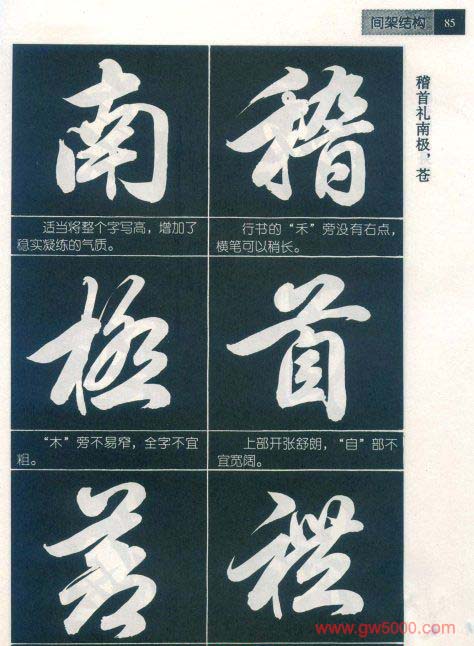 间架结构 85
稽首礼南极，苍
稽
行书的“禾”旁没有右点，
横笔可以稍长。
首
上部开张舒朗，“自”部不
宜宽阔。
禮
南
适当将整个字写高，增加了
稳实凝练的气质。
極
“木”旁不易窄，全字不宜
粗。
蒼
www.gw5000.com